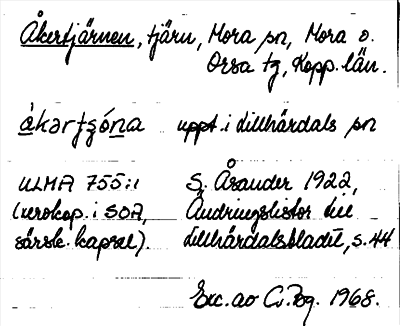 Åkertjärnen, tjärn, Mora sn, Mora o.
Orsa tg, Kopp. län.
àkərtʂó̱na uppt. i Lillhärdals sn
ULMA 755:1 S. Åsander 1922,
(xerokop. i SOA, Ändringslistor till
särsk. kapsel). Lillhärdalsbladet, s. 44
Exc. av C. Pog. 1968.